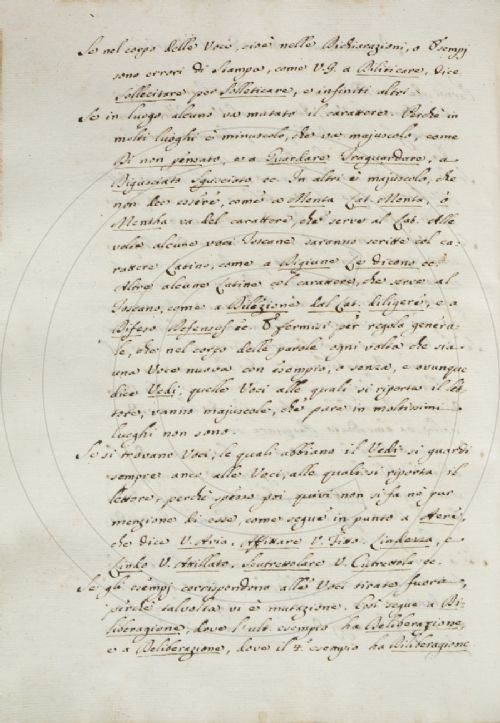 Se nel corpo delle Voce, cioè nelle Dichiarazioni, o Esempj
sono errori di Stampa, come V.G. a Diliticare, dice
Sollecitare per Solleticare, e infiniti altri.
Se in luogo alcuno va mutato il carattere. Perchè in
molti luoghi è minuscolo, che va majuscolo, come
Di non pensato, e a Guardare Traguardare, a
Digusciato Sgusciato ec. In altri è majuscolo, che
non dee essere, come a Menta Lat. Menta, o
Mentha va del carattere, che serve al Lat. Alle
volte alcune voci Toscane saranno scritte col ca-
rattere Latino, come a Digiune Le dicono ec.
Altre alcune Latine col carattere, che serve al
Toscano, come a Dilezione dal Lat. diligere, e a
Difeso Defensus ec. E fermisi per regola genera-
le, che nel corpo delle parole ogni volta che sia
una Voce nuova con esempio, o senza, e ovunque
dice Vedi, quelle Voci alle quali si riporta il let-
tore, vanno majuscole, che pare in moltissimi
luoghi non sono.
Se si trovano Voci, le quali abbiano il Vedi si guardi
sempre anco alle Voci, alle quali si riporta il
lettore, perchè spesso poi quivi non si fa nè pur
menzione di esse, come segue in punto a Aere,
che dice V. Aria, Affittare V. Fitto
Lindo V. Attillato, Scutrettolare V. Cutrettola ec.
Se gli esempj corrispondono alle Voci tirate fuori,
perchè talvolta vi è mutazione. Così segue a Di-
liberagione, dove l'ult. esempio ha Deliberazione,
e a Deliberazione, dove il 4. esempio ha Diliberagione